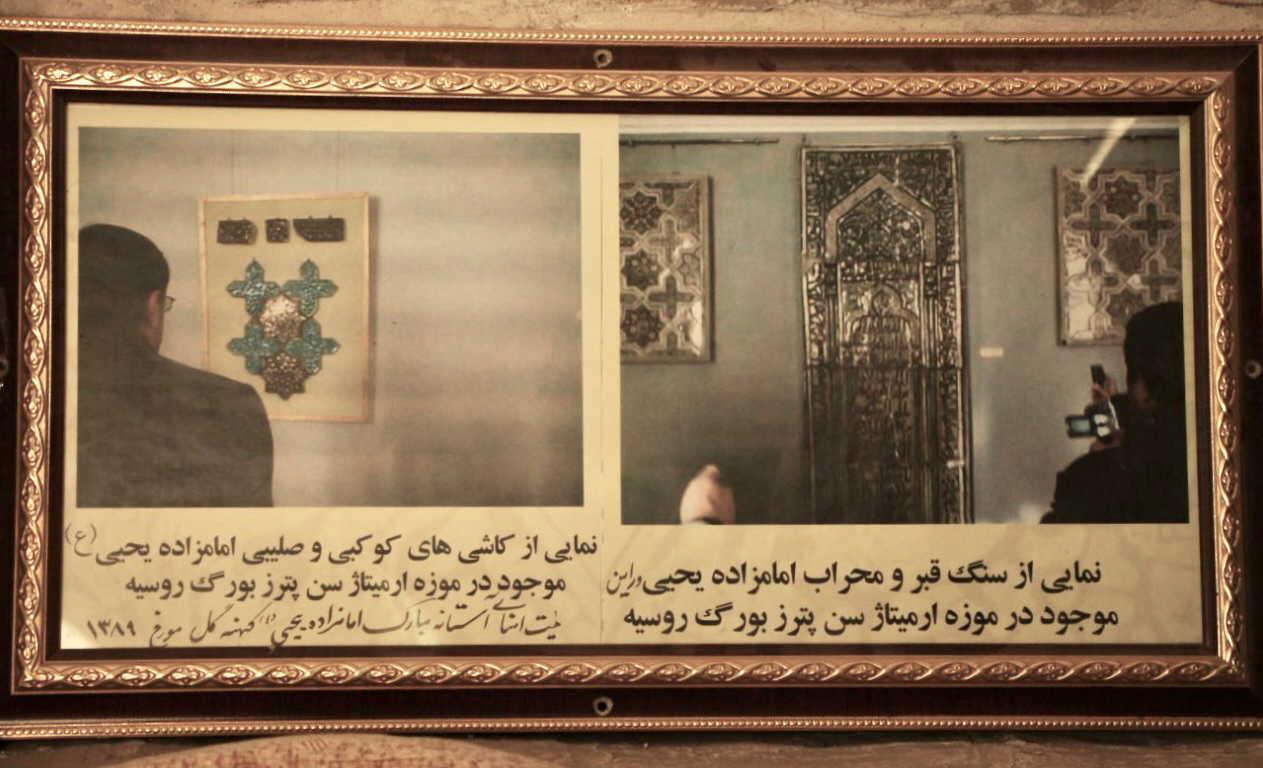 نمایی از سنگ قبر و محراب امامزاده یحیی ورامین
موجود در موزه ارمیتاژ سن پترز بورگ روسیه
نمایی از کاشی های کوکبی و صلیبی امامزاده یحیی (ع)
موجود در موزه ارمیتاژ سن پترز بورگ روسیه
هیئت امنای آستانه مبارک امامزاده یحیی (ع) کهنه گل مورخ ۱۳۸۹